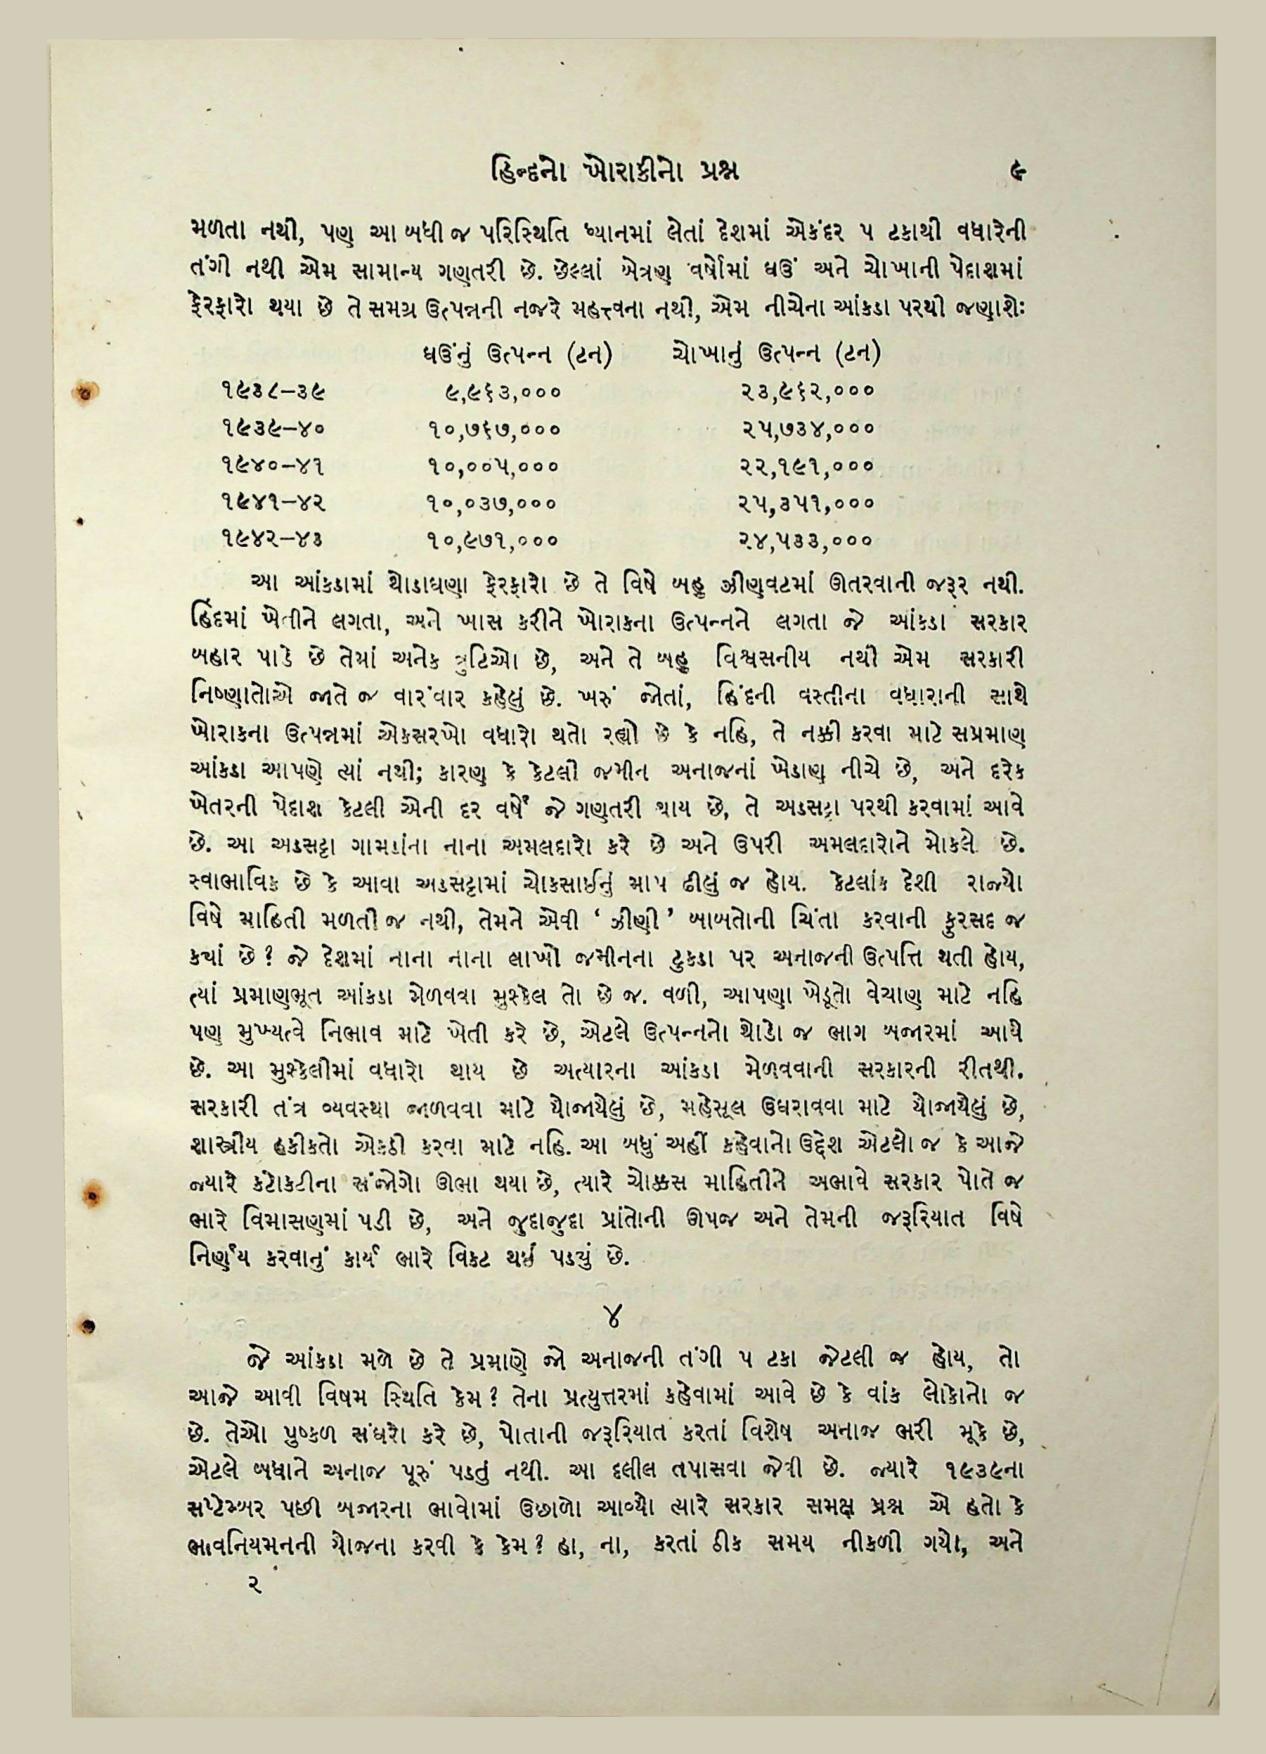 હિન્દનો ખોરાકીનો પ્રશ્ન ૯
મળતા નથી, પણ આ બધી જ પરિસ્થિતિ ધ્યાનમાં લેતાં દેશમાં એકંદર ૫ ટકાથી વધારેની
તંગી નથી એમ સામાન્ય ગણતરી છે. છેલ્લાં બેત્રણ વર્ષોમાં ઘઉં અને ચોખાની પેદાશમાં
ફેરફારો થયા છે તે સમગ્ર ઉત્પન્નની નજરે મહત્ત્વના નથી, એમ નીચેના આંકડા પરથી જણાશેઃ
ઘઉંનું ઉત્પન્ન (ટન) ચોખાનું ઉત્પન્ન (ટન)
૧૯૩૮–૩૯ ૯,૯૬૩,૦૦૦ ૨૩,૯૬૨,૦૦૦
૧૯૩૯–૪૦ ૧૦,૭૬૭,૦૦૦ ૨૫,૭૩૪,૦૦૦
૧૯૪૦–૪૧ ૧૦,૦૦૫,૦૦૦ ૨૨,૧૯૧,૦૦૦
૧૯૪૧–૪૨ ૧૦,૦૩૭,૦૦૦ ૨૫,૩૫૧,૦૦૦
૧૯૪૨–૪૩ ૧૦,૯૭૧,૦૦૦ ૨૪,૫૩૩,૦૦૦
આ આંકડામાં થોડાઘણા ફેરફારો છે તે વિષે બહુ ઝીણવટમાં ઊતરવાની જરૂર નથી.
હિંદમાં ખેતીને લગતા, અને ખાસ કરીને ખોરાકના ઉત્પન્નને લગતા જે આંકડા સરકાર
બહાર પાડે છે તેમાં અનેક ત્રુટિઓ છે, અને તે બહુ વિશ્વસનીય નથી એમ સરકારી
નિષ્ણાતોએ જાતે જ વારંવાર કહેલું છે. ખરું જોતાં, હિંદની વસ્તીના વધારાની સાથે
ખોરાકના ઉત્પન્નમાં એકસરખો વધારો થતો રહ્યો છે કે નહિ, તે નક્કી કરવા માટે સપ્રમાણ
આંકડા આપણે ત્યાં નથી; કારણ કે કેટલી જમીન અનાજનાં ખેડાણ નીચે છે, અને દરેક
ખેતરની પેદાશ કેટલી એની દર વર્ષે જે ગણતરી થાય છે, તે અડસટ્ટા પરથી કરવામાં આવે
છે. આ અડસટ્ટા ગામડાંના નાના અમલદારો કરે છે અને ઉપરી અમલદારોને મોકલે છે.
સ્વાભાવિક છે કે આવા અડસટ્ટામાં ચોકસાઈનું માપ ઢીલું જ હોય. કેટલાંક દેશી રાજ્યો
વિષે માહિતી મળતી જ નથી, તેમને એવી ‘ ઝીણી ’ બાબતોની ચિંતા કરવાની ફુરસદ જ
ક્યાં છે? જે દેશમાં નાના નાના લાખો જમીનના ટુકડા પર અનાજની ઉત્પત્તિ થતી હોય,
ત્યાં પ્રમાણભૂત આંકડા મેળવવા મુશ્કેલ તો છે જ. વળી, આપણા ખેડૂતો વેચાણ માટે નહિ
પણ મુખ્યત્વે નિભાવ માટે ખેતી કરે છે, એટલે ઉત્પન્નનો થોડો જ ભાગ બજારમાં આવે
છે. આ મુશ્કેલીમાં વધારો થાય છે અત્યારના આંકડા મેળવવાની સરકારની રીતથી.
સરકારી તંત્ર વ્યવસ્થા જાળવવા માટે યોજાયેલું છે, મહેસૂલ ઉઘરાવવા માટે યોજાયેલું છે,
શાસ્ત્રીય હકીકતો એકઠી કરવા માટે નહિ. આ બધું અહીં કહેવાનો ઉદ્દેશ એટલો જ કે આજે
જ્યારે કટોકટીના સંજોગો ઊભા થયા છે, ત્યારે ચોક્કસ માહિતીને અભાવે સરકાર પોતે જ
ભારે વિમાસણમાં પડી છે, અને જુદાજુદા પ્રાંતોની ઊપજ અને તેમની જરૂરિયાત વિષે
નિર્ણય કરવાનું કાર્ય ભારે વિકટ થઈ પડ્યું છે.
૪
જે આંકડા મળે છે તે પ્રમાણે જો અનાજની તંગી ૫ ટકા જેટલી જ હોય, તો
આજે આવી વિષમ સ્થિતિ કેમ? તેના પ્રત્યુત્તરમાં કહેવામાં આવે છે કે વાંક લોકોનો જ
છે. તેઓ પુષ્કળ સંઘરો કરે છે, પોતાની જરૂરિયાત કરતાં વિશેષ અનાજ ભરી મૂકે છે,
એટલે બધાને અનાજ પૂરું પડતું નથી. આ દલીલ તપાસવા જેવી છે. જ્યારે ૧૯૩૯ના
સપ્ટેમ્બર પછી બજારના ભાવોમાં ઉછાળો આવ્યો ત્યારે સરકાર સમક્ષ પ્રશ્ન એ હતો કે
ભાવનિયમનની યોજના કરવી કે કેમ? હા, ના, કરતાં ઠીક સમય નીકળી ગયો, અને
૨